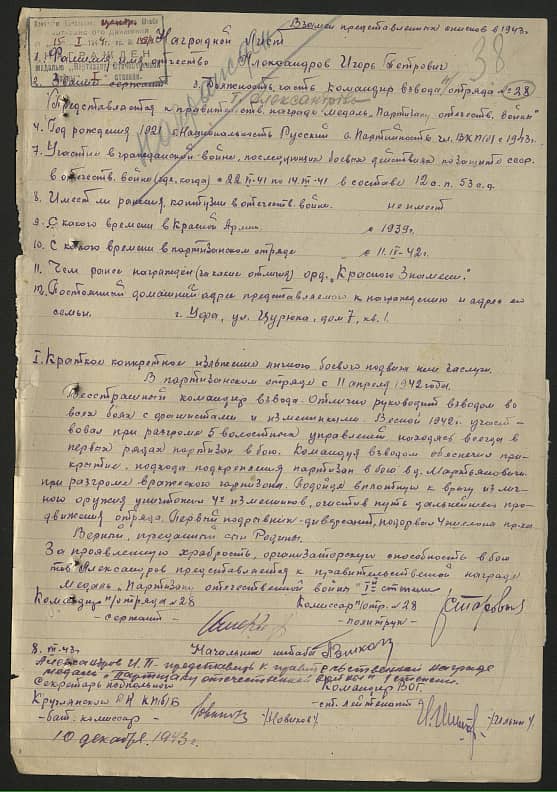 Взамен представленных списков в 1943г.
38
Наградной Лист
1. Фамилия, имя, отчество Александров Игорь Петрович
2. Звание сержант 3. Должность, часть командир взвода п/отряда №28
Представляется к правительств. награде медаль „Партизану отечеств. войны"
4. Год рождения 1921 5. Национальность Русский 6. Партийность чл. ВКП(б) с 1943г.
7. Участие в гражданской войне, последующих боевых действиях по защите ссср
и отечеств. войне (где, когда) с 22-VI-41 по 14-VII-41 в составе 12 с.п. 53 с.д.
8. Имеет ли ранения, контузии в отечеств. войне. не имеет
9. С какого времени в Красной Армии с 1939г.
10. С какого времени в партизанском отряде с 11.IV-42г.
11. Чем ранее награжден (за какие отличия) орд. „Красного Знамени."
12. Постоянный домашний адрес представляемого к награждению и адрес его
семьи. г. Уфа, ул. Цурюпа, дом 7, кв. 1.
I. Краткое конкретное изложение личного боевого подвига или заслуги.
В партизанском отряде с 11 апреля 1942 года.
Бесстрашный командир взвода. Отлично руководит взводом во
всех боях с фашистами и изменниками. Весной 1942г. участ-
вовал при разгроме 5 волостных управлений находясь всегда в
первых рядах партизан в бою. Командуя взводом обеспечил при-
крытие, подхода подкрепления партизан в бою в д. Мартьяновичи
при разгроме вражеского гарнизона. Подойдя вплотную к врагу из лич-
ного оружия уничтожил 4х изменников, очистив путь дальнейшего про-
движения отряда. Первый подрывник-диверсант, подорвал 4 эшелона врага.
Верный, преданный сын Родины.
За проявленную храбрость, организаторскую способность в бою
тов. Александров представляется к правительственной награде
медаль „Партизану отечественной войны" I-й степени
Командир п/отряда №28 Комиссар п/отр. №28
- сержант - - политрук -
8.III-43г. Начальник штаба
Александров И.П. представить к правительственной награде
медаль „Партизану отечественной войны" I степени.
Секретарь подпольного Командир ВОГ.
Круглянского РК КП(б)Б - ст. лейтенант -
- бат. комиссар - /Новиков/
10 декабря 1943г.